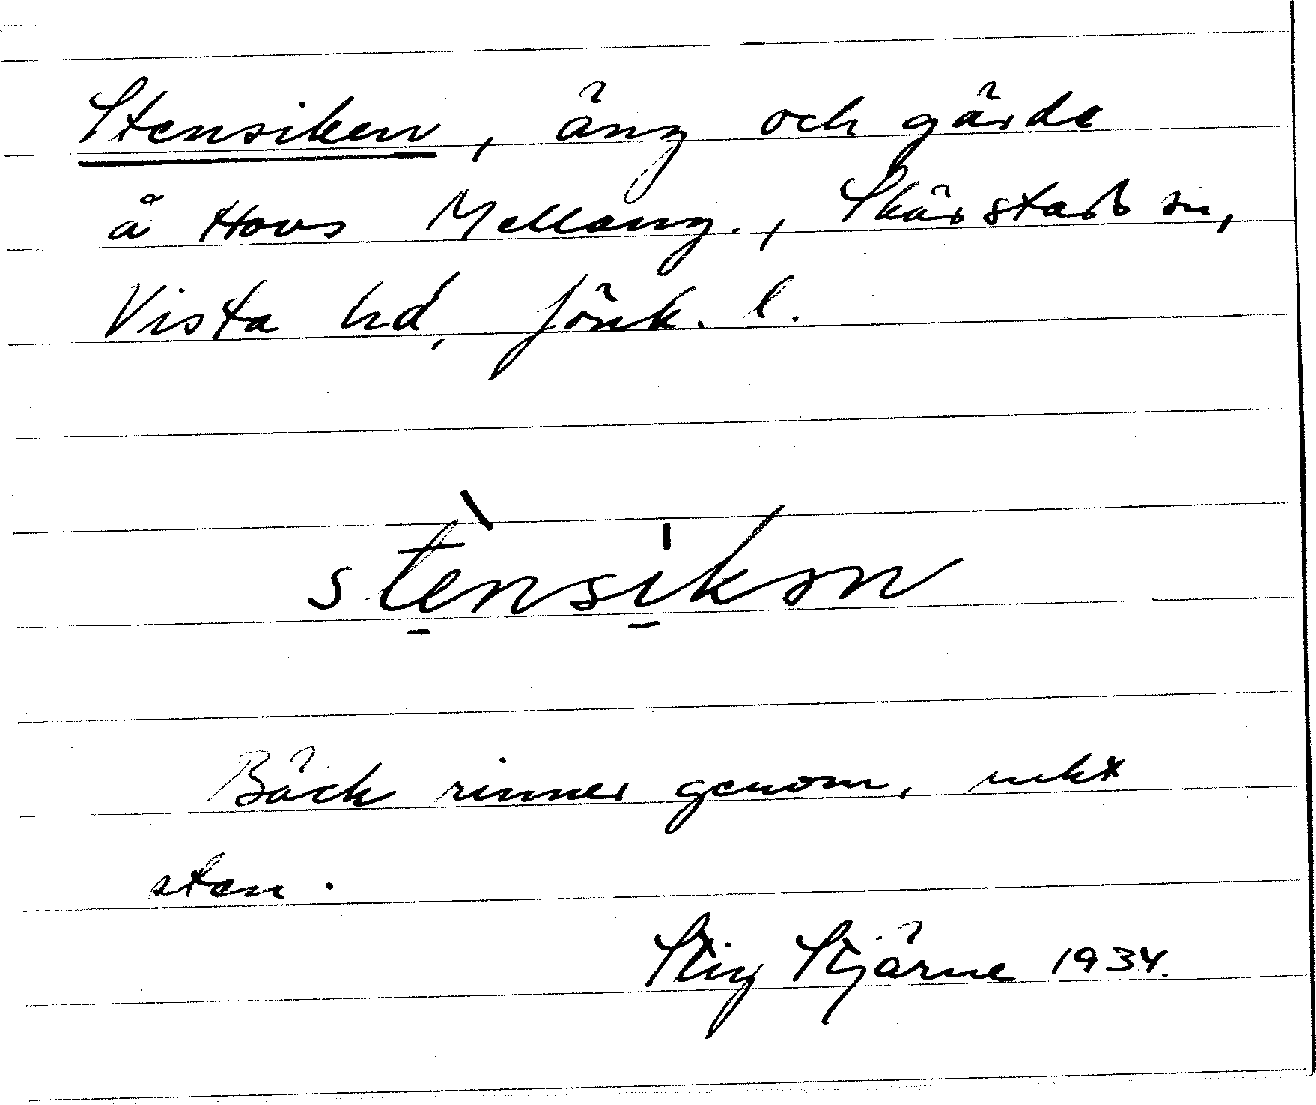 Stensiken, äng och gärde
å Hovs Mellang., Skärstads sn,
Vista hd, Jönk. l.
stènsikən
Bäck rinner genom, mkt
sten.
Stig Stjärne 1934.